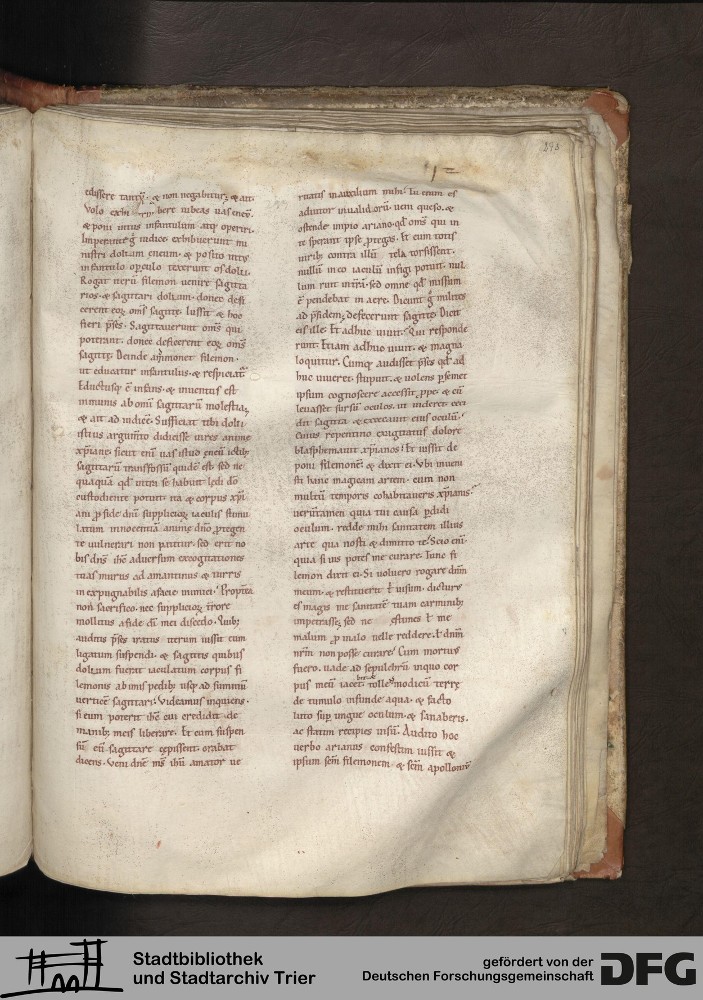 edissere tantũ. & non negabitur. & ait.
volo bere iubeas uas eneũ.
& poni intus infantulum atq; operiri.
Imperante g̃ iudice exhibuerunt mi
nistri dolium eneum. & posito intus
infantulo opculo texerunt os dolii.
Rogat uerũ filemon uenire sagitta
rios. & sagittari dolium. donec defi
cerent eor̃ om̃s sagittę. Iussit & hoc
fieri p̃ses. Sagittauerunt om̃s qui
poterant. donec deficerent eor̃ om̃s
sagittę. Deinde ammonet filemon.
ut educatur infantulus. & respiciat̃.
Eductusq; ẽ infans. & inuentus est
inmunis ab omi sagittarũ molestia.
& ait ad iudicẽ. Sufficiat tibi dolii
istius argumto didicisse uires anime
xp̃iane. sicut eni uas istud eneũ ictib;
sagittarũ transfossũ quidẽ est. sed ne
quaquã qd̃ intra se habuit lędi do
custodiente potuit. ita & corpus xp̃i
ani p fide dni supplicior̃ iaculis stimu
latum innocentiã anime dño ptegen
te uulnerari non patitur. sed erit no
bis dñs ihc aduersum excogitationes
tuas murus adamantinus & turris
inexpugnabilis afacie inimici. Propt̃ea
non sacrifico. nec supplicior̃ t̃rore
mollitus a fide dĩ mei discedo. Quib;
auditis p̃ses iratus iterum iussit eum
ligatum suspendi. & sagittis quibus
dolium fuerat iaculatum corpus fi
lemonis ab imis pedib; usq; ad summũ
uerticẽ sagittari. Videamus inquiens.
si eum poterit ihc cui credidit. de
manib; meis liberare. Et cum suspen
sũ eũ sagittare cępissent. orabat
dicens. Veni dñe ms̃ ihũ amator ue
ritatis in auxilium mihi. Tu enim es
adiutor inualidorũ. ueni queso. &
ostende impio ariano. qd̃ om̃s qui in
te sperant ipse ptegas. Et cum totis
uirib; contra illũ tela torsissent.
nullũ in eo iaculũ infigi potuit. nul
lum ruit intra. sed omne qd̃ missum
ẽ pendebat in aere. Dicunt g̃ milites
ad p̃sidem. defecerunt sagittę. Dicit
eis ille. Et adhuc uiuit. Qui responde
runt. Etiam adhuc uiuit. & magna
loquitur. Cumq; audisset p̃ses qd̃ ad
huc uiueret. stupuit. & uolens p semet
ipsum cognoscere accessit ppe. & cũ
leuasset sursũ oculos. ut uideret. ceci
dit sagitta & excecauit eius oculũ.
Cuius repentino excitatus dolore
blasphemauit xp̃ianos. Et iussit de
poni filemonẽ. & dixit ei. Vbi inueni
sti hanc magicam artem. cum non
multũ temporis cohabitaueris xp̃ianis.
ueruntamen quia tui causa pdidi
oculum. redde mihi sanitatem illius
arte qua nosti & dimitto te. Scio eni
quia si uis potes me curare. Tunc fi
lemon dixit ei. Si uoluero rogare dñm
meum. & restituerit t̃ uisum. dicturus
es magis me sanitatẽ tuam carminib;
impetrasse. sed ne estimes t̃ me
malum p malo uelle reddere. t̃ dñm
nr̃m non posse curare. Cum mortuus
fuero. uade ad sepulchrũ inquo cor
pus meũ iacet. tolle modicũ terrę
de tumulo infunde aqua. & facto
luto sup ungue oculum. & sanaberis.
ac statim recipies uisũ. Audito hoc
uerbo arianus confestim iussit &
ipsum scm̃ filemonem & scm̃ apolloniũ
Stadtbibliothek
und Stadtarchiv Trier
gefördert von der
Deutschen Forschungsgemeinschaft
DFG